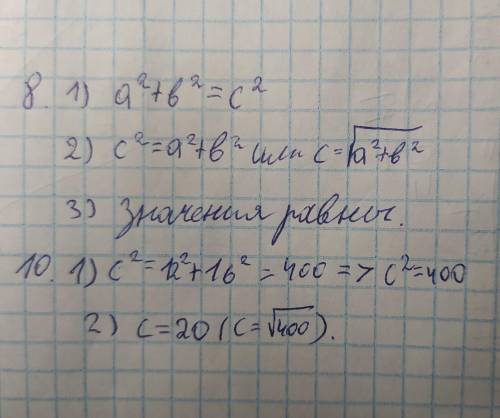 8. 1) a²+b²=c²
2) c²=a²+b² или c=√a²+b²
3) Значения равны.
10. 1) c²=12²+16²=400=>c²=400
2) c=20(c=√400).